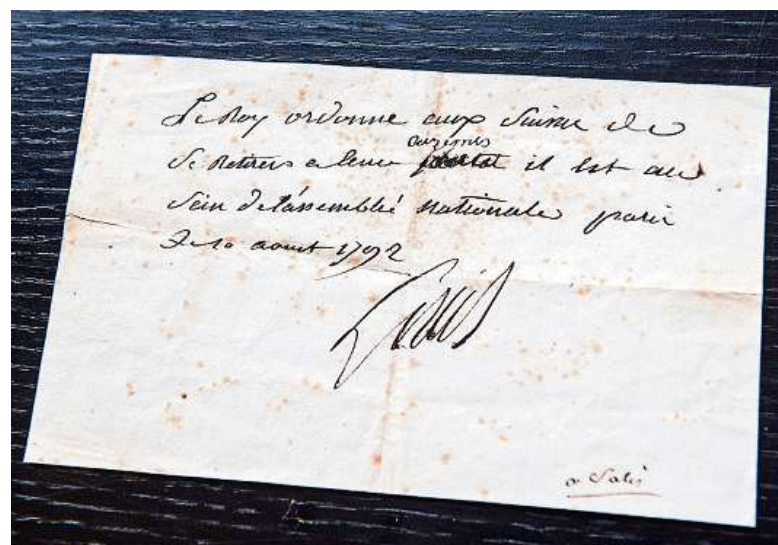 Le Roy ordonne aux Suisse de
se retirer a leur cazernes il est au
sein de l'assemblé nationale paris
Le 10 aoust 1792
Louis
a Salis